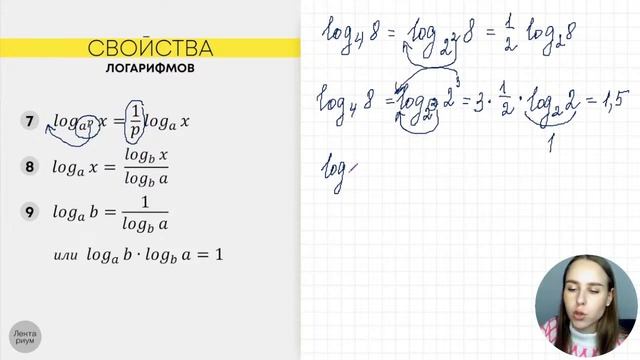 СВОЙСТВА
ЛОГАРИФМОВ
7 log_{a^p} x = \frac{1}{p} log_a x
8 log_a x = \frac{log_b x}{log_b a}
9 log_a b = \frac{1}{log_b a}
или log_a b · log_b a = 1
Лекта
риум
log_4 8 = log_{2^2} 8 = \frac{1}{2} log_2 8
log_4 8 = log_{2^2} 2^3 = 3 · \frac{1}{2} · log_2 2 = 1,5
1
log